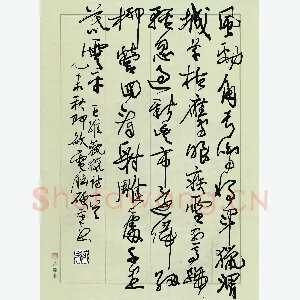 風勁角弓鳴將軍獵渭
城草枯鷹眼疾雪盡馬蹄
輕忽過新豐市還歸細
柳營回看射雕處千里
暮雲平 王維觀獵詩